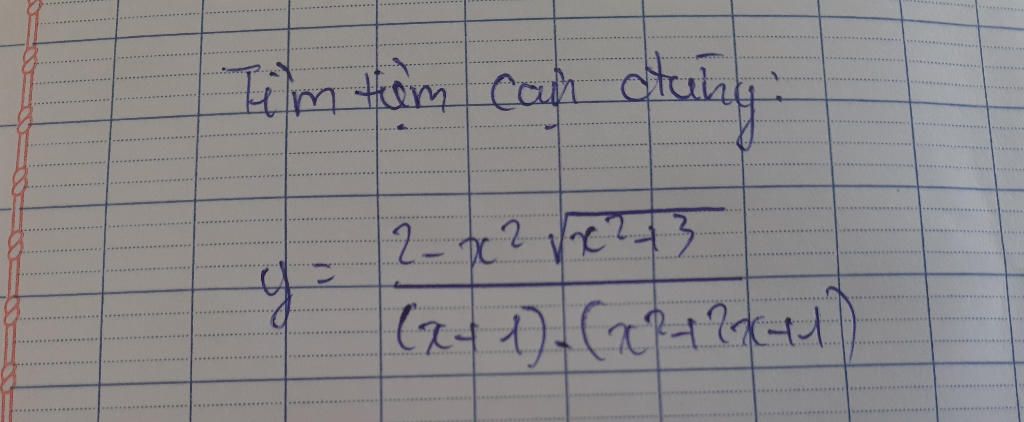 Tìm tiệm cận đứng:
y = (2 - x² √(x² + 3)) / ((x + 1) . (x² + 2x + 1))